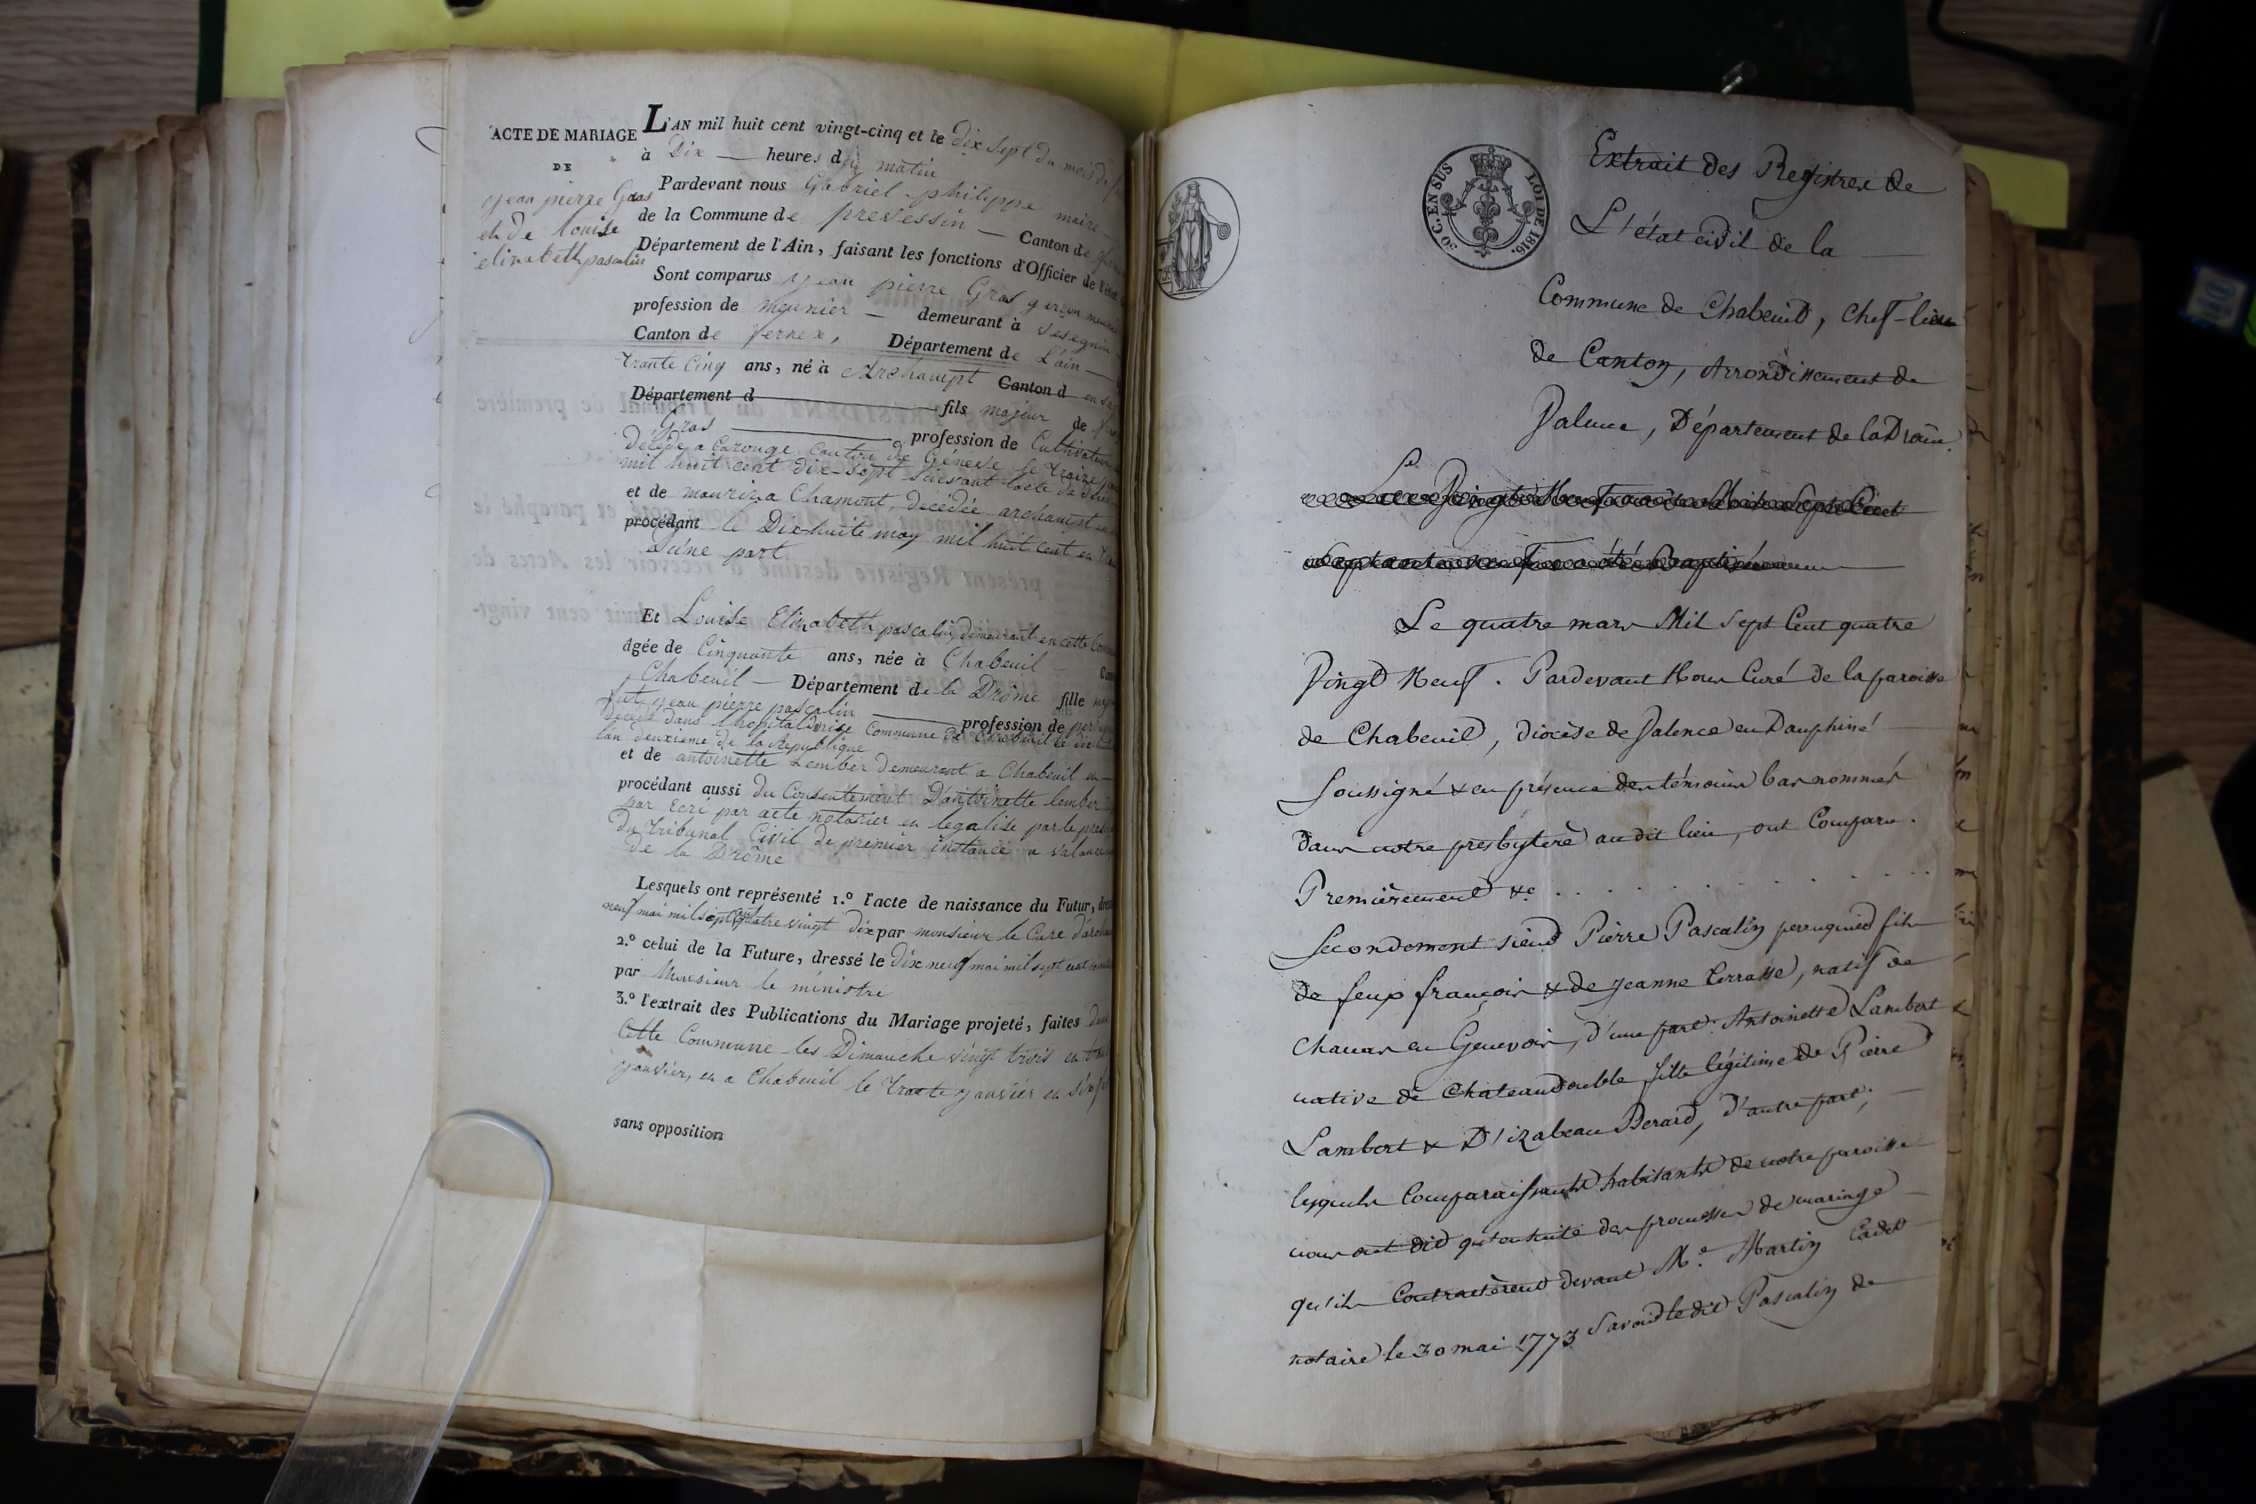 ACTE DE MARIAGE
DE
jean pierre Gras
et de Louise
elizabeth pascalin
L'AN mil huit cent vingt-cinq et le dix sept du mois de
à Dix — heures du matin
Pardevant nous Gabriel philippe maire
de la Commune de prevessin — Canton de
Département de l'Ain, faisant les fonctions d'Officier de l'état
Sont comparus jean pierre Gras garçon
profession de meunier — demeurant à
Canton de fernex, Département de L'ain —
trante Cinq ans, né à Archampt Canton d en
Département d — fils majeur de
Gras — profession de Cultivateur
décédé a Carouge Canton de Genève le traize
mil huit cent dix-sept suivant l'acte de
et de mauriza Chamont, decédée archampt
procédant le Dix huite may mil huit cent en
D'une part
Et Louise Elizabeth pascalin demeurant en cette
âgée de Cinquante ans, née à Chabeuil —
Chabeuil — Département de la Drôme fille
jean pierre pascalin — profession de
décédé dans l'hopital Commune de
l'an deuxieme de la Republique
et de antoinette Lember demeurant a Chabeuil en
procédant aussi du Consentement D'antoinette lember
par Ecri par acte notarier en legalisé par le
du tribunal Civil de premier instance a valance
de la Drôme
Lesquels ont représenté 1.º l'acte de naissance du Futur,
neuf mai mil sept cent quatre vingt dix par monsieur le Curé
2.º celui de la Future, dressé le dix neuf mai mil sept cent
par Monsieur le ministre
3.º l'extrait des Publications du Mariage projeté, faites
Cette Commune les Dimanche vingt trois en
janvier, en a Chabeuil le trante janvier en
sans opposition
30 C. EN SUS
LOI DE 1816.
Extrait des Registres de
L'état civil de la —
Commune de Chabeuil, chef-lieu
de Canton, Arrondissement de
Valence, Département de la Drôme.
Le Vingt Neuf Mil Sept Cent
Septante a été Baptisé
Le quatre mars Mil Sept Cent quatre
Vingt Neuf. Pardevant Nous Curé de la paroisse
de Chabeuil, diocèse de Valence en Dauphiné
Soussigné & en présence des témoins bas nommés
dans notre presbytere au dit lieu, ont Comparu.
Premièrement &c. . . . . . . . . . . .
Secondement sieur Pierre Pascalin peruquier fils
de feux françois & de jeanne Terrasse, natif de
chanas en Genevois, d'une part: Antoinette Lambert
native de Chateaudouble fille légitime de Pierre
Lambert & D'izabeau Berard, d'autre part;
lesquels Comparaissants habitants de notre paroisse
nous ont dit qu'ensuite des promesses de mariage
qu'ils Contractèrent devant Me. Martin Cadet
notaire le 30 mai 1773 savoir le dit Pascalin de